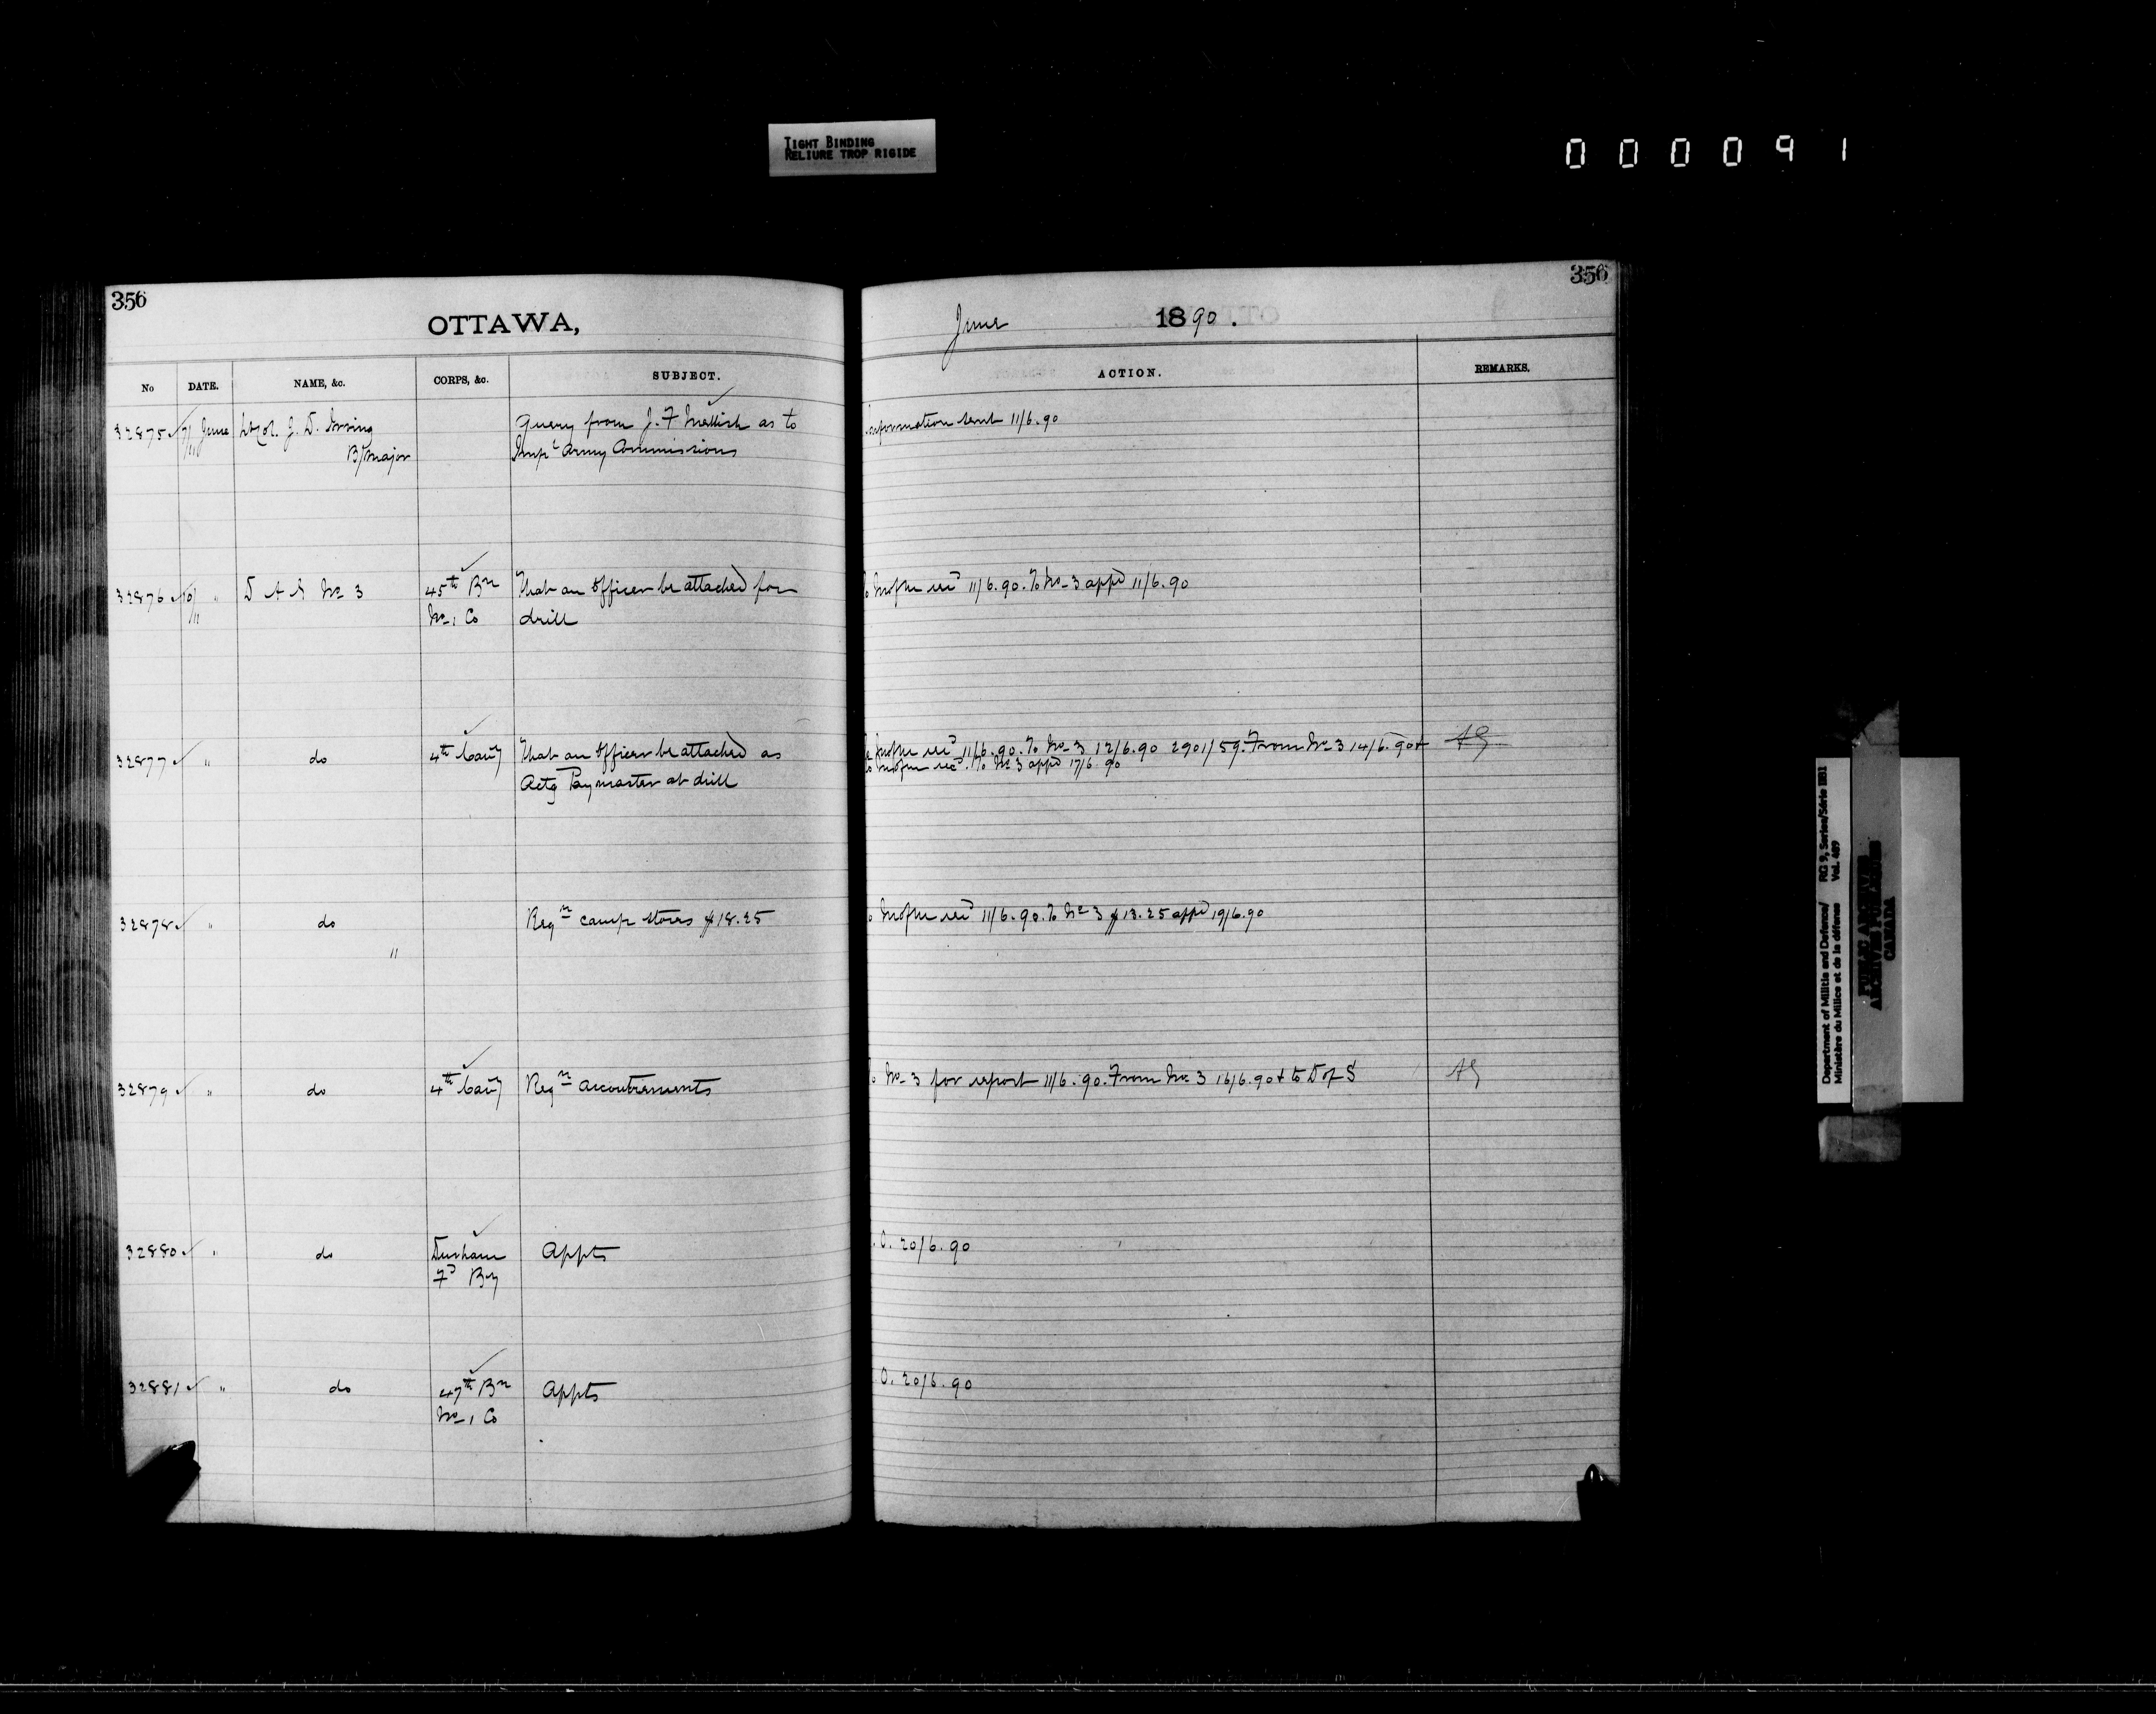 TIGHT BINDING
RELIURE TROP RIGIDE
000091
356
OTTAWA,
No DATE. NAME, &c. CORPS, &c. SUBJECT.
32875 7/11 June Lt Col. J. D. Irving Query from J. F Mellish as to
B/Major Impl Army Commissions
32876 10/11 " D A G No 3 45th Bn That an Officer be attached for
No 1 Co drill
32877 " do 4th Cavy That an Officer be attached as
Actg Paymaster at drill
32878 " do Reqn camp stores $18.25
"
32879 " do 4th Cavy Reqn accoutrements
32880 " do Durham Appts
Fd By
32881 " do 47th Bn Appts
No 1 Co
356
June 1890.
ACTION. REMARKS.
Information sent 11/6.90
11/6.90. To No 3 appd 11/6.90
11/6.90. To No 3 12/6.90 2901/59. From No 3 14/6.90 & AG
To No 3 appd 17/6.90
11/6.90. To No 3 $13.25 appd 19/6.90
No 3 for report 11/6.90. From No 3 16/6.90 & to D of S AG
O. 20/6.90
O. 20/6.90
Department of Militia and Defence/ RG 9, Series/Série IIB1
Ministère du Milice et de la défense Vol. 489
PUBLIC ARCHIVES
ARCHIVES PUBLIQUES
CANADA